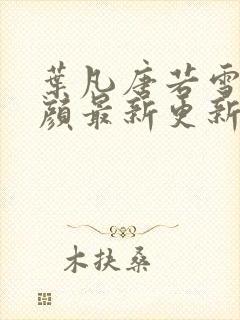 葉凡唐若雪
顏最新更新
木扶桑